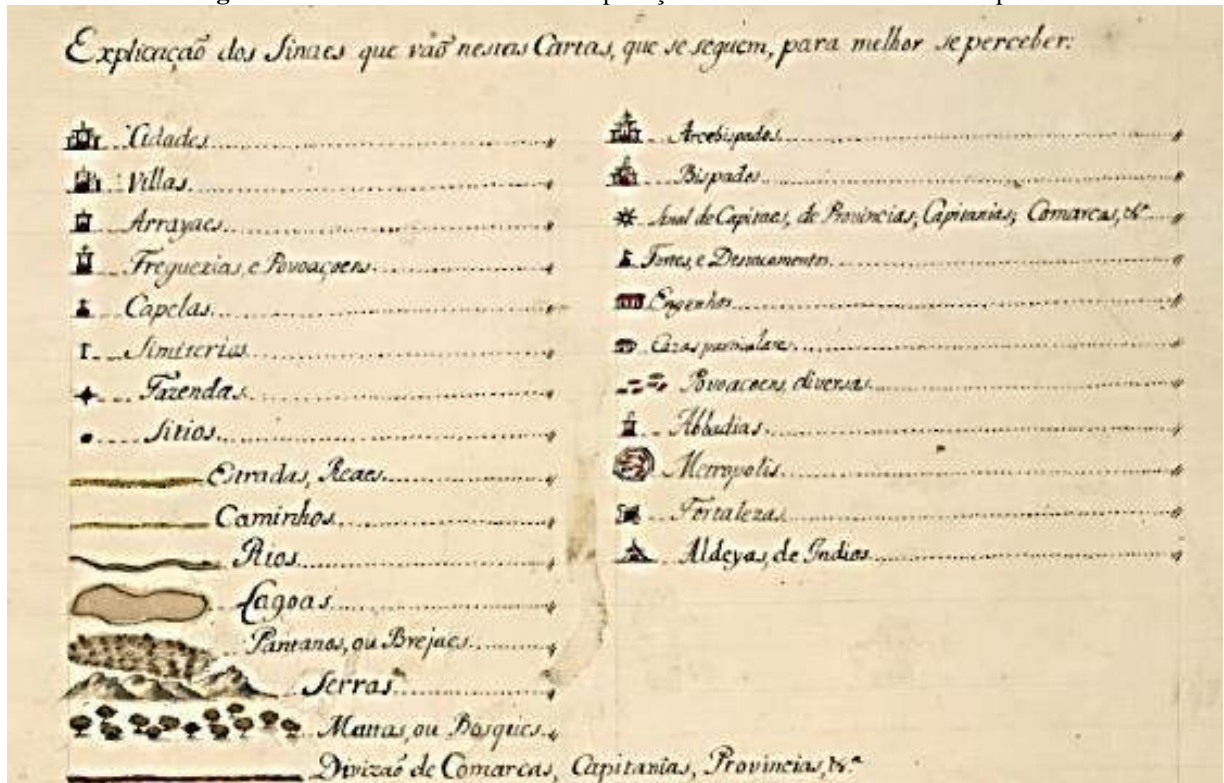 Explicação dos Sinaes que vaõ nestas Cartas, que se seguem, para melhor se perceber:
Cidades
Villas
Arrayaes
Freguezias, e Povoaçoens
Capelas
Simiterios
Fazendas
Sitios
Estradas, Reaes
Caminhos
Rios
Lagoas
Pantanos, ou Brejaes
Serras
Mattas, ou Bosques
Divizaõ de Comarcas, Capitanias, Provincias, &ª
Arcebispados
Bispados
Sinal de Capitaes, de Provincias, Capitanias, Comarcas, &ª
Fortes, e Destacamentos
Engenhos
Cazas particulares
Povoacoens, diversas
Abbadias
Metropolis
Fortalezas
Aldeyas, de Indios